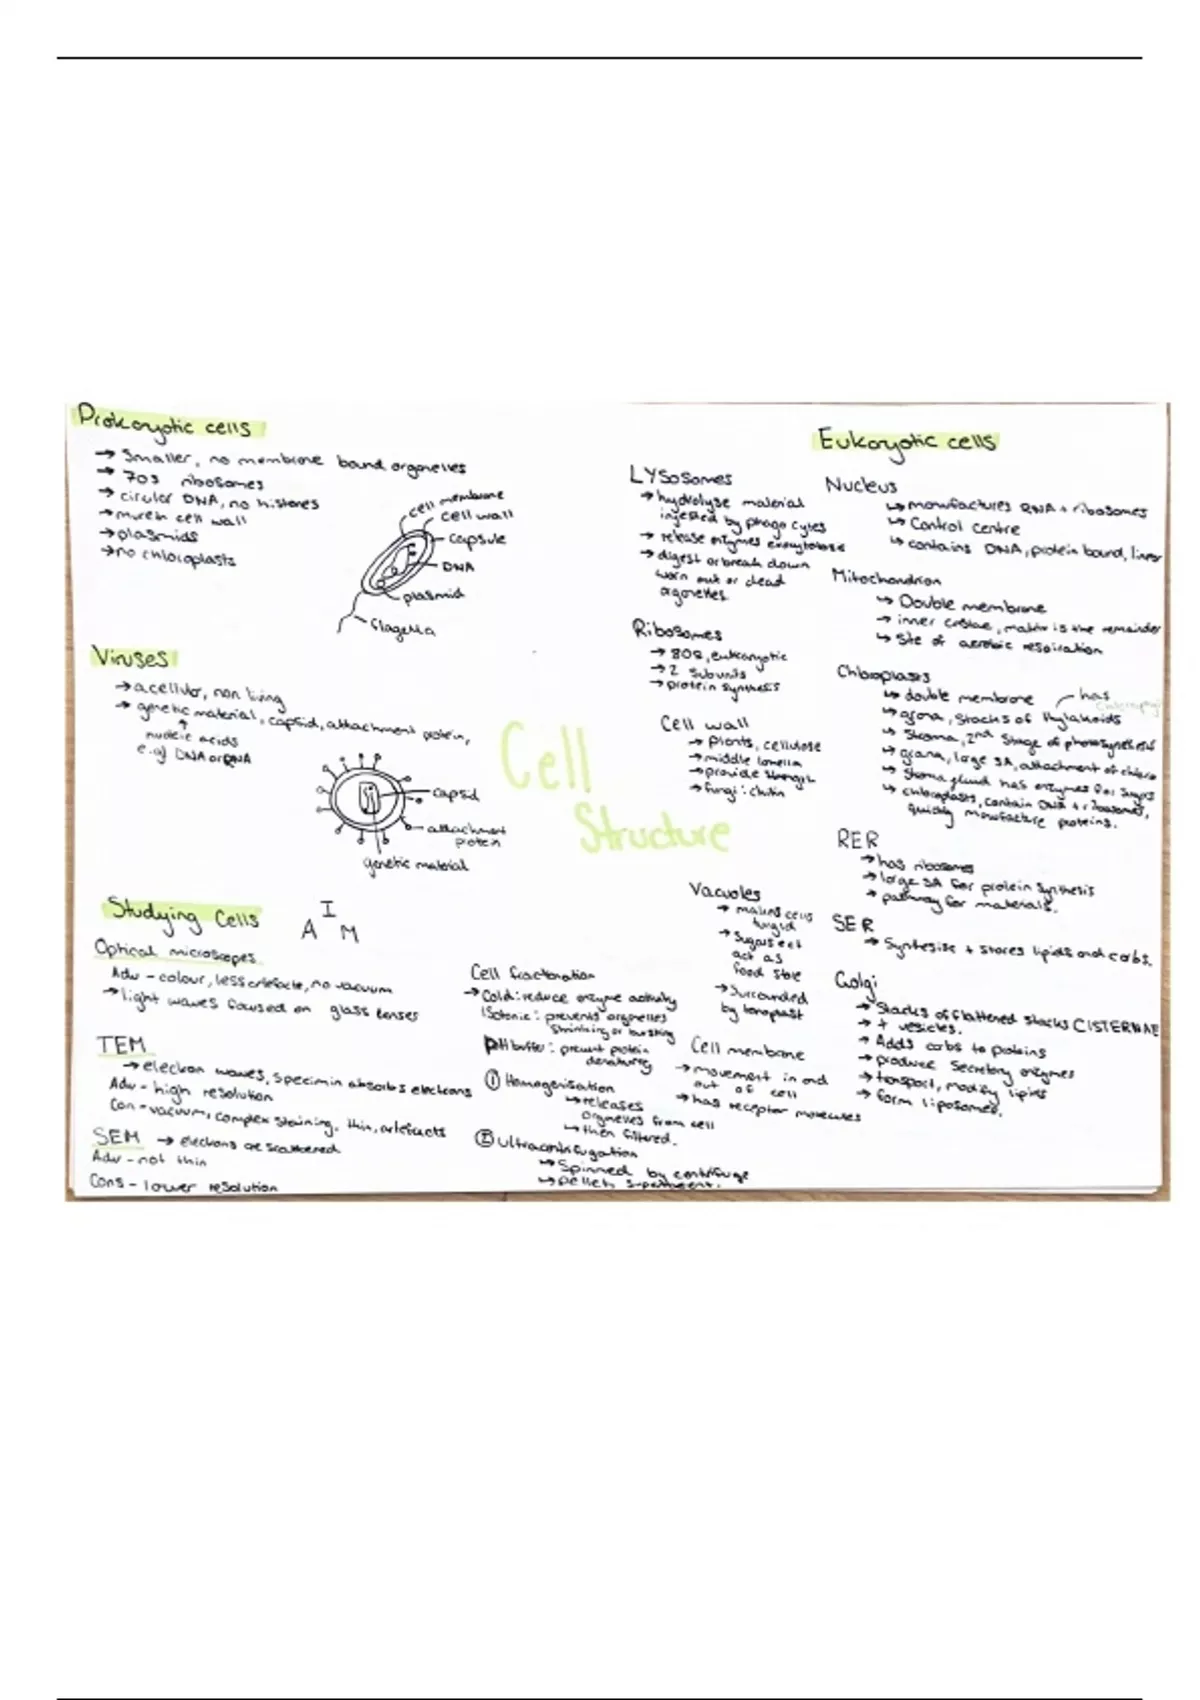 Prokaryotic cells
→ Smaller, no membrane bound organelles
→ 70s ribosomes
→ circular DNA, no histones
→ murein cell wall
→ plasmids
→ no chloroplasts
cell membrane
cell wall
capsule
DNA
plasmid
flagella
Viruses
→ acellular, non living
→ genetic material, capsid, attachment protein,
nucleic acids
e.g) DNA or RNA
capsid
attachment
protein
genetic material
Studying Cells
I
A M
Optical microscopes.
Adv - colour, less artefacts, no vacuum
→ light waves focused on glass lenses
TEM
→ electron waves, specimin absorbs electrons
Adv - high resolution
Con - vacuum, complex staining, thin, artefacts
SEM → electrons are scattered
Adv - not thin
Cons - lower resolution
Cell
Structure
Cell fractionation
→ Cold: reduce enzyme activity
Isotonic: prevents organelles
shrinking or bursting
pH buffer: prevent protein
denaturing
① Homogenisation
↳ releases
organelles from cell
↳ then filtered.
② Ultracentrifugation
↳ Spinned by centrifuge
↳ pellet,
Eukaryotic cells
LYSosomes
→ hydrolyse material
ingested by phagocytes
→ release enzymes exocytosis
→ digest or break down
worn out or dead
organelles.
Ribosomes
→ 80s, eukaryotic
→ 2 subunits
→ protein synthesis
Cell wall
→ plants, cellulose
→ middle lamella
→ provide strength
→ fungi: chitin
Vacuoles
→ makes cells
turgid
→ Sugars
act as
food store
→ Surrounded
by tonoplast
Cell membrane
→ movement in and
out of cell
→ has receptor molecules
Nucleus
↳ manufactures RNA + ribosomes
↳ Control centre
↳ contains DNA, protein bound, linear
Mitochondrion
↳ Double membrane
↳ inner cristae, matrix is the remainder
↳ Site of aerobic respiration
Chloroplasts
↳ double membrane has
↳ grana, stacks of thylakoids
↳ Stroma, 2nd stage of photosynthesis
↳ grana, large SA, attachment of chloro
↳ Stroma fluid has enzymes for sugars
↳ chloroplasts, contain DNA + ribosomes,
quickly manufacture proteins.
RER
→ has ribosomes
→ large SA for protein synthesis
→ pathway for materials.
SER
→ Synthesise + stores lipids and carbs.
Golgi
→ Stacks of flattened stacks CISTERNAE
→ + vesicles.
→ Adds carbs to proteins
→ produce secretory enzymes
→ transport, modify lipids
→ form liposomes.